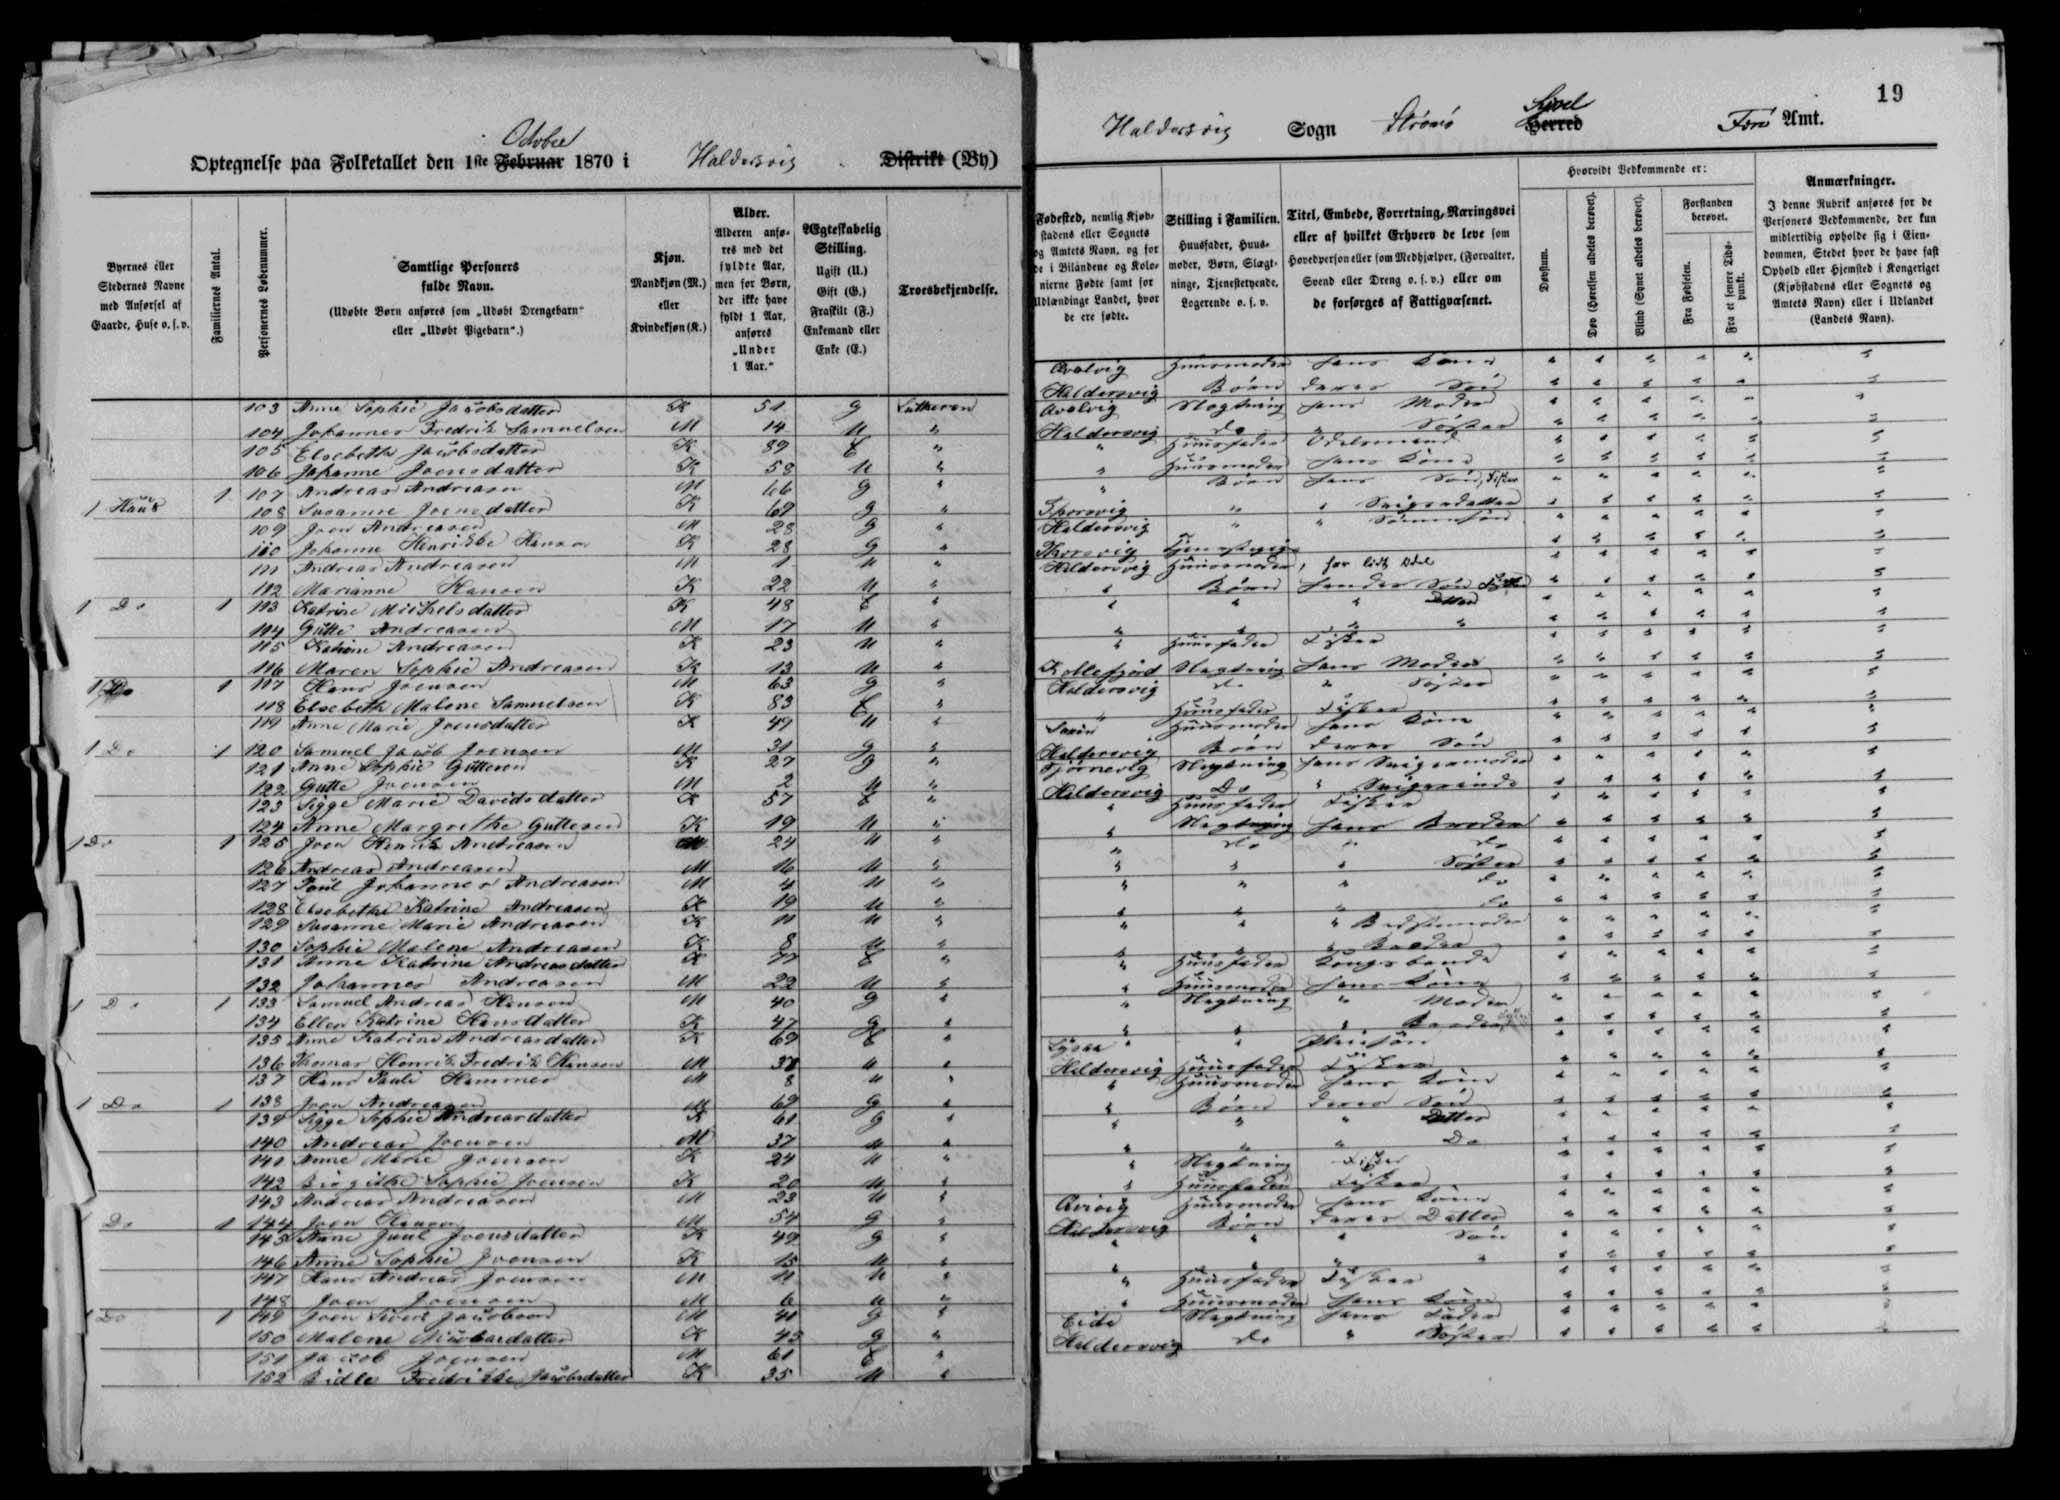 October
Optegnelse paa Folketallet den 1ste Februar 1870 i Haldersvig Distrikt (By)
Byernes eller Stedernes Navne med Anførsel af Gaarde, Huse o. s. v.
Familiernes Antal.
Personernes Løbenummer.
Samtlige Personers fulde Navn.
(Udøbte Børn anføres som „Udøbt Drengebarn“ eller „Udøbt Pigebarn“.)
Kjøn. Mandkjøn (M.) eller Kvindekjøn (K.)
Alder. Alderen anføres med det fyldte Aar, men for Børn, der ikke have fyldt 1 Aar, anføres „Under 1 Aar.“
Ægteskabelig Stilling. Ugift (U.) Gift (G.) Fraskilt (F.) Enkemand eller Enke (E.)
Troesbekjendelse.
103 Anne Sophie Jacobsdatter K 51 G Lutheran
104 Johannes Fredrik Samuelsen M 14 U "
105 Elsebeth Jacobsdatter K 89 E "
106 Johanne Joensdatter K 58 U "
1 Huus 1 107 Andreas Andreasen M 66 G "
108 Susanne Joensdatter K 69 G "
109 Joen Andreasen M 28 G "
110 Johanne Henrikke Hansen K 28 G "
111 Andreas Andreasen M 1 U "
112 Marianne Hansen K 22 U "
1 Do 1 113 Katrine Michelsdatter K 48 E "
114 Gutte Andreasen M 17 U "
115 Katrine Andreasen K 23 U "
116 Maren Sophie Andreasen K 13 U "
1 Do 1 117 Hans Joensen M 63 G "
118 Elsebeth Malene Samuelsen K 83 E "
119 Anne Marie Joensdatter K 49 U "
1 Do 1 120 Samuel Jacob Joensen M 31 G "
121 Anne Sophie Guttesen K 27 G "
122 Gutte Joensen M 2 U "
123 Sigge Marie Davidsdatter K 57 E "
124 Anne Margrethe Guttesen K 19 U "
1 Do 1 125 Joen Henrik Andreasen M 24 U "
126 Andreas Andreasen M 16 U "
127 Poul Johannes Andreasen M 4 U "
128 Elsebeth Katrine Andreasen K 19 U "
129 Susanne Marie Andreasen K 11 U "
130 Sophie Malene Andreasen K 8 U "
131 Anne Katrine Andreasdatter K 77 E "
132 Johannes Andreasen M 22 U "
1 Do 1 133 Samuel Andreas Hansen M 40 G "
134 Ellen Katrine Hansdatter K 47 G "
135 Anne Katrine Andreasdatter K 69 E "
136 Thomas Henrik Fredrik Hansen M U "
137 Hans Pauli Hammer M 8 U "
1 Do 1 138 Joen Andreasen M 69 G "
139 Sigge Sophie Andreasdatter K 61 G "
140 Andreas Joensen M 37 U "
141 Anne Marie Joensen K 24 U "
142 Birgithe Sophie Joensen K 20 U "
143 Andreas Andreasen M 23 U "
Do 1 144 Joen Hansen M 54 G "
145 Anne Juul Joensdatter K 49 G "
146 Anne Sophie Joensen K 15 U "
147 Hans Andreas Joensen M 11 U "
148 Joen Joensen M 6 U "
Do 1 149 Joen Sivert Jacobsen M 41 G "
150 Malene K 45 G "
151 Jacob Joensen M 61 E "
152 Fredrikke Jacobsdatter K 35 U "
19
Haldersvig Sogn Strømø Herred Syssel Færø Amt.
Fødested, nemlig Kjøbstadens eller Sognets og Amtets Navn, og for de i Bilandene og Kolonierne Fødte samt for Udlændinge Landet, hvor de ere fødte.
Stilling i Familien. Huusfader, Huusmoder, Børn, Slægtninge, Tjenestetyende, Logerende o. s. v.
Titel, Embede, Forretning, Næringsvei eller af hvilket Erhverv de leve som Hovedperson eller som Medhjælper, (Forvalter, Svend eller Dreng o. s. v.) eller om de forsørges af Fattigvæsenet.
Hvorvidt Vedkommende er:
Døvstum.
Døv (Hørelsen aldeles berøvet).
Blind (Synet aldeles berøvet).
Forstanden berøvet.
Fra Fødselen.
Fra et senere Tidspunkt.
Anmærkninger.
I denne Rubrik anføres for de Personers Vedkommende, der kun midlertidig opholde sig i Eiendommen, Stedet hvor de have fast Ophold eller Hjemsted i Kongeriget (Kjøbstadens eller Sognets og Amtets Navn) eller i Udlandet (Landets Navn).
Qvalvig Huusmoder hans Kone
Haldersvig Børn deres Søn
Qvalvig Slægtning hans Moder
Haldersvig Do " Søster
" Huusfader Odelsmand
" Huusmoder hans Kone
" Børn hans Søn, Fisker
Thorsvig " " Svigerdatter
Haldersvig " " Sønnesøn
Thorsvig Tjenestepige
Haldersvig Huusmoder, har lidt Odel
" Børn hendes Søn Fisker
" " " Datter
" " " "
" Huusfader Fisker
Kollefjord Slægtning hans Moder
Haldersvig Do " Søster
" Huusfader Fisker
Saxen Huusmoder hans Kone
Haldersvig Børn deres Søn
Tjørnevig Slægtning hans Svigermoder
Haldersvig Do " Svigerinde
" Huusfader Fisker
" Slægtning hans Broder
" Do " Do
" " " Søster
" " " Do
" " " Do
" " " Bedstemoder
" " " Broder
" Huusfader Kongsbonde
" Huusmoder hans Kone
" Slægtning " Moder
" " " Broder
" " Pleiesøn
Haldersvig Huusfader Fisker
" Huusmoder hans Kone
" Børn deres Søn
" " " Datter
" " " Do
" Slægtning Fisker
" Huusfader Fisker
Qvivig Huusmoder hans Kone
Haldersvig Børn deres Datter
" " " Søn
" " " "
" Huusfader Fisker
" Huusmoder hans Kone
Eide Slægtning hans Fader
Haldersvig Do " Søster